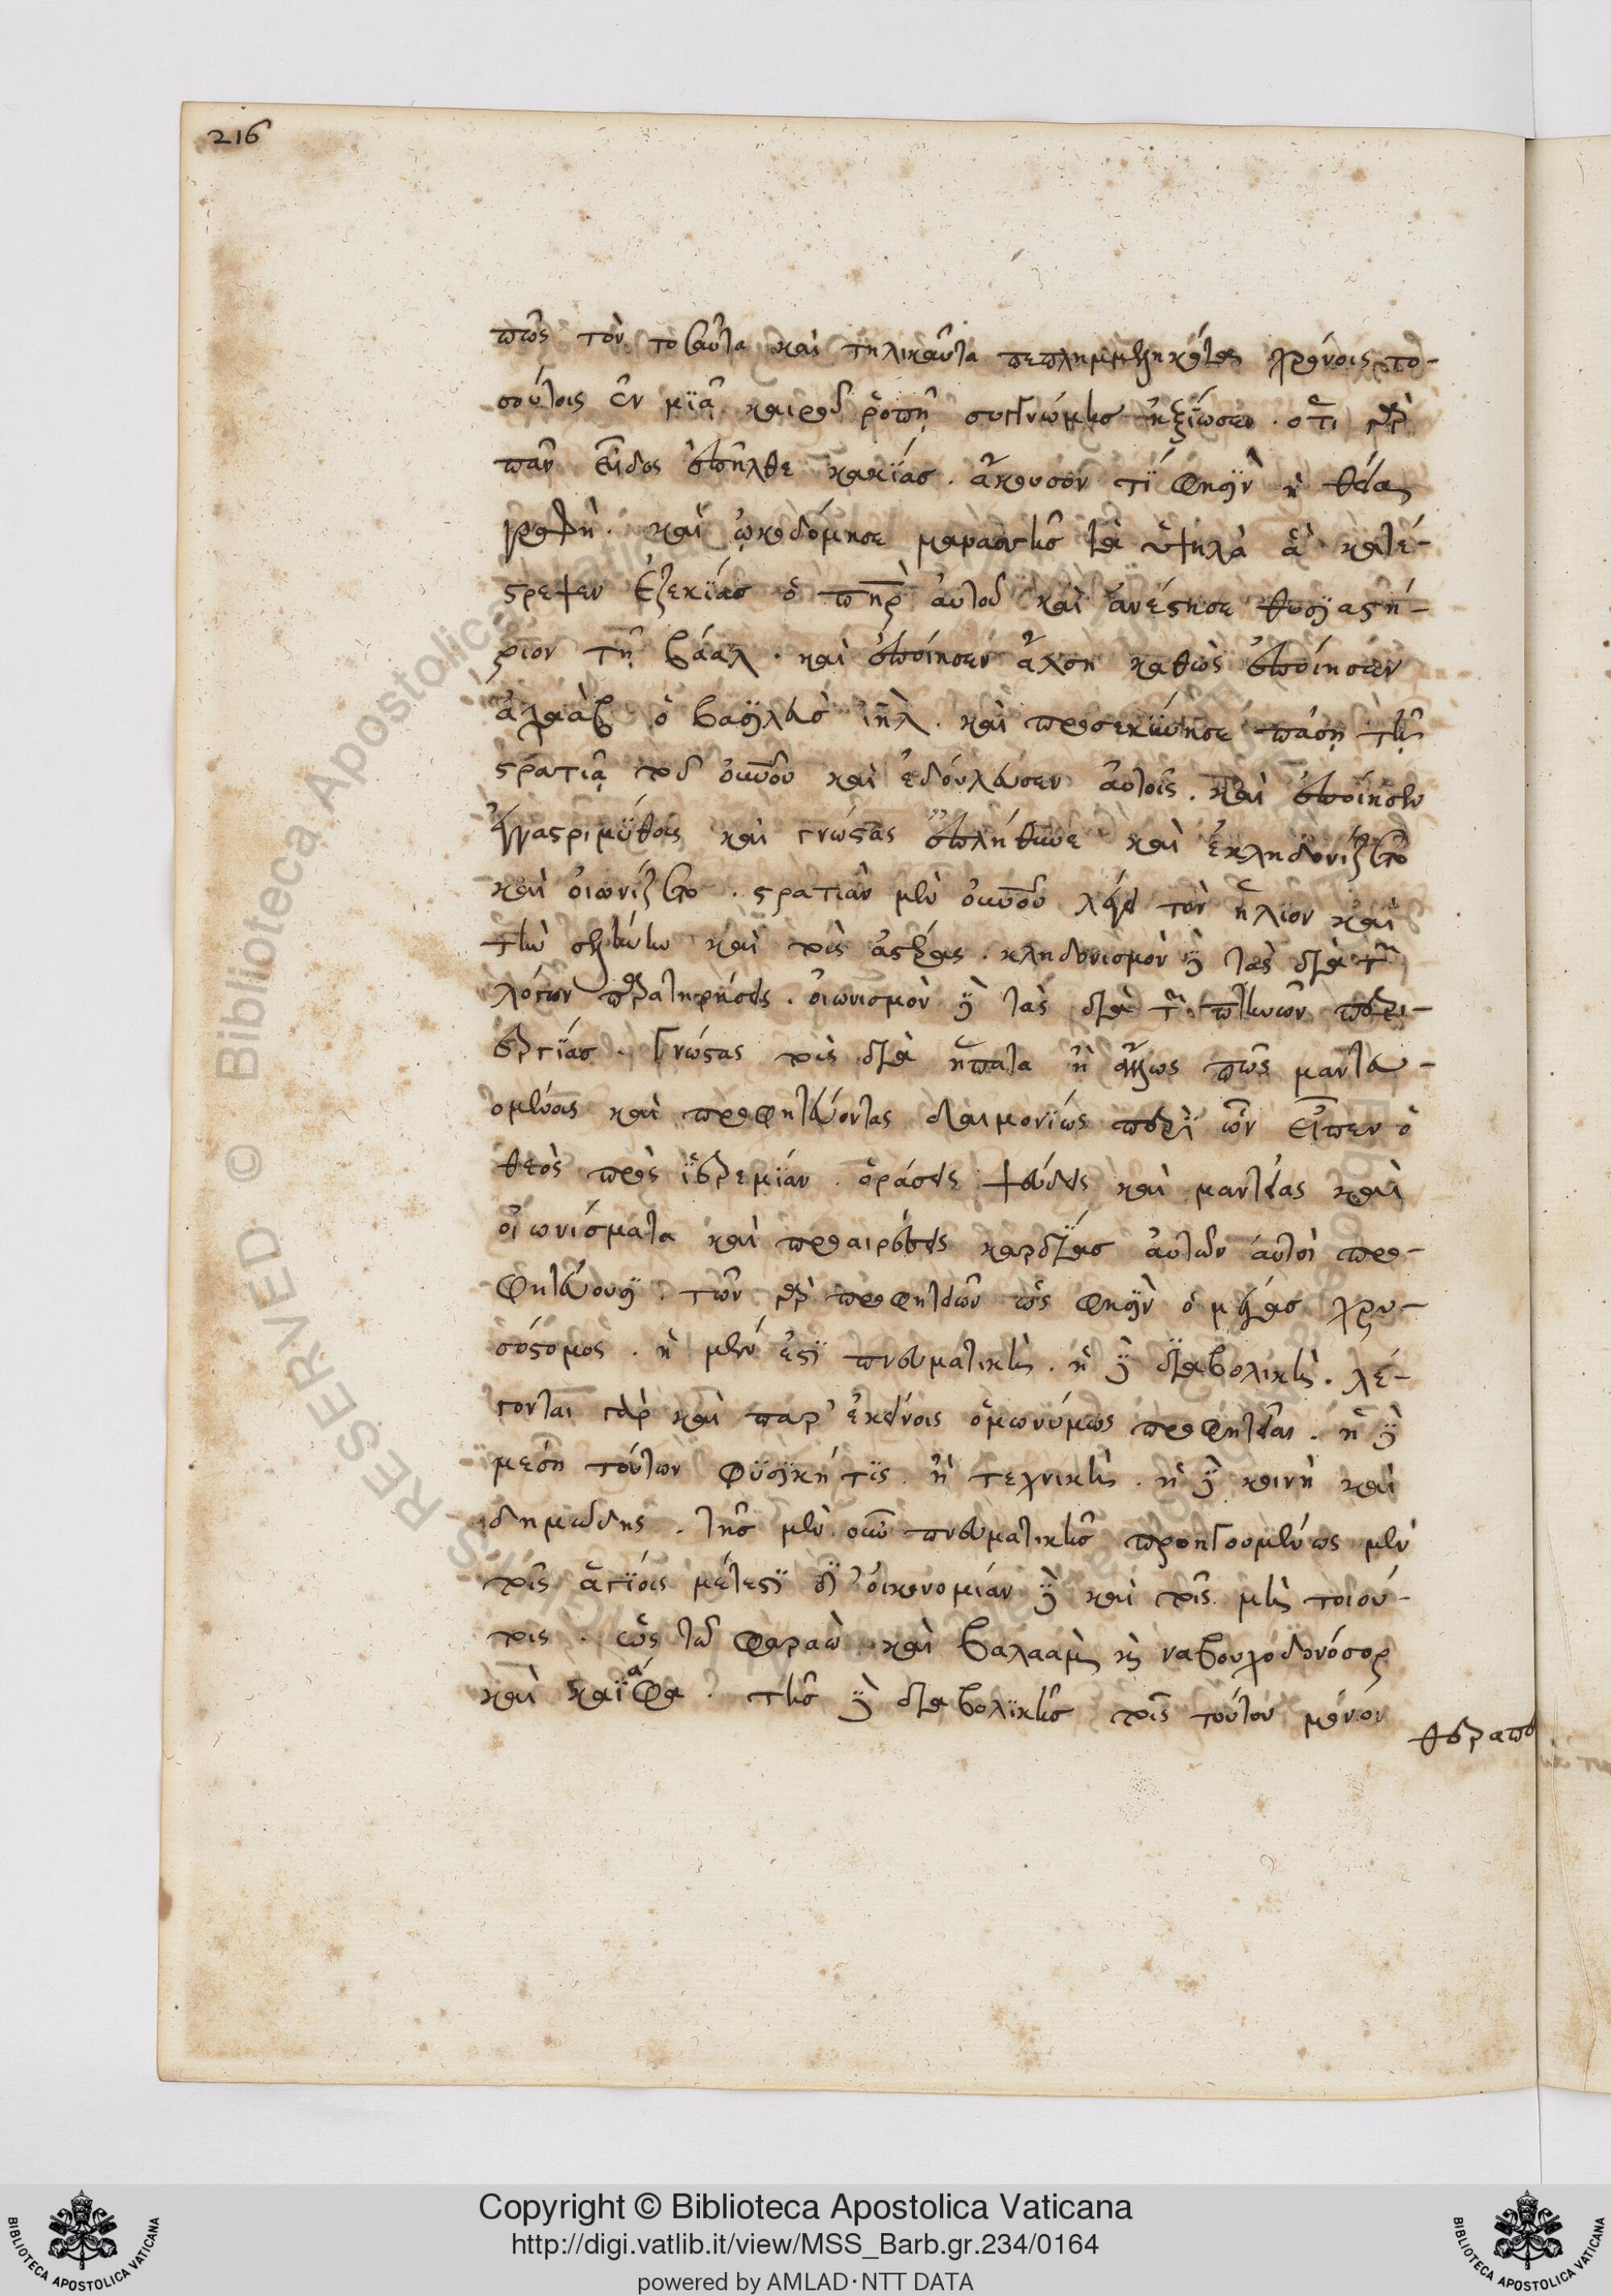 216
πῶς τὸν τοιαῦτα καὶ τηλικαῦτα πεπλημμεληκότα χρόνοις το-
σούτοις ἐν μϊᾷ καιροῦ ῥοπῇ συγγνώμης ἠξίωσεν. ὅτι γὰρ
πᾶν εἶδος ἐπῆλθε κακίας. ἄκουσον τί φησϊν ἡ θεία
γραφὴ. καὶ ᾠκοδόμησε μανασσῆς τὰ ὑψηλὰ ἃ κατέ-
στρεψεν ἐζεκίας ὁ πηρ αὐτοῦ καὶ ἀνέστησε θυσϊαστή-
ριον τῇ βάαλ. καὶ ἐποίησεν ἄλση καθὼς ἐποίησεν
ἀχαὰβ ὁ βασϊλεὺς ἰηλ. καὶ προσεκύνησε πάσῃ τῇ
στρατιᾷ τοῦ οὐνοῦ καὶ ἐδούλευσεν αὐτοῖς. καὶ ἐποίησεν
ἐγγαστριμύθους καὶ γνώστας ἐπλήθυνε καὶ ἐκληδονίζετο
καὶ οἰωνίζετο. στρατιὰν μὲν οὐνοῦ λέγει τὸν ἥλϊον καὶ
τὴν σελήνην καὶ τοὺς ἀστέρας. κληδονισμὸν δὲ τὰς διὰ τῶν
λόγων παρατηρήσεις. οἰωνισμὸν δὲ τὰς διὰ τῶν πτηνῶν περι-
εργίας. γνώστας τοὺς διὰ ἥπατα ἢ ἄλλως πῶς μαντευ-
ομένους καὶ προφητεύοντας δαιμονίως περὶ ὧν εἶπεν ὁ
θεὸς πρὸς ϊερεμϊαν. ὁράσεις ψευδεῖς καὶ μαντείας καὶ
οἰωνίσματα καὶ προαιρέσεις καρδίας αὐτῶν αὐτοὶ προ-
φητεύουσϊ. τῶν γὰρ προφητειῶν ὥς φησϊν ὁ μέγας χρυ-
σόστομος. ἡ μὲν ἐστϊ πνευματικὴ. ἡ δὲ διαβολικὴ. λέ-
γονται γὰρ καὶ παρ' ἐκείνοις ὁμωνύμως προφητεῖαι. ἡ δὲ
μέση τούτων φϋσϊκή τϊς ἢ τεχνικὴ. ἡ δὲ κοινὴ καὶ
δημώδης. τῆς μὲν οὖν πνευματικῆς προηγουμένως μὲν
τοῖς ἁγϊοις μέτεστϊ δι' οἰκονομίαν δὲ καὶ τοῖς μὴ τοιού-
τοις. ὡς τῷ φαραὼ καὶ βαλαὰμ κ̀ ναβουχοδονόσορ
καὶ καϊάφα. τῆς δὲ διαβολϊκῆς τοῖς τούτου μόνοι
θεραπευ